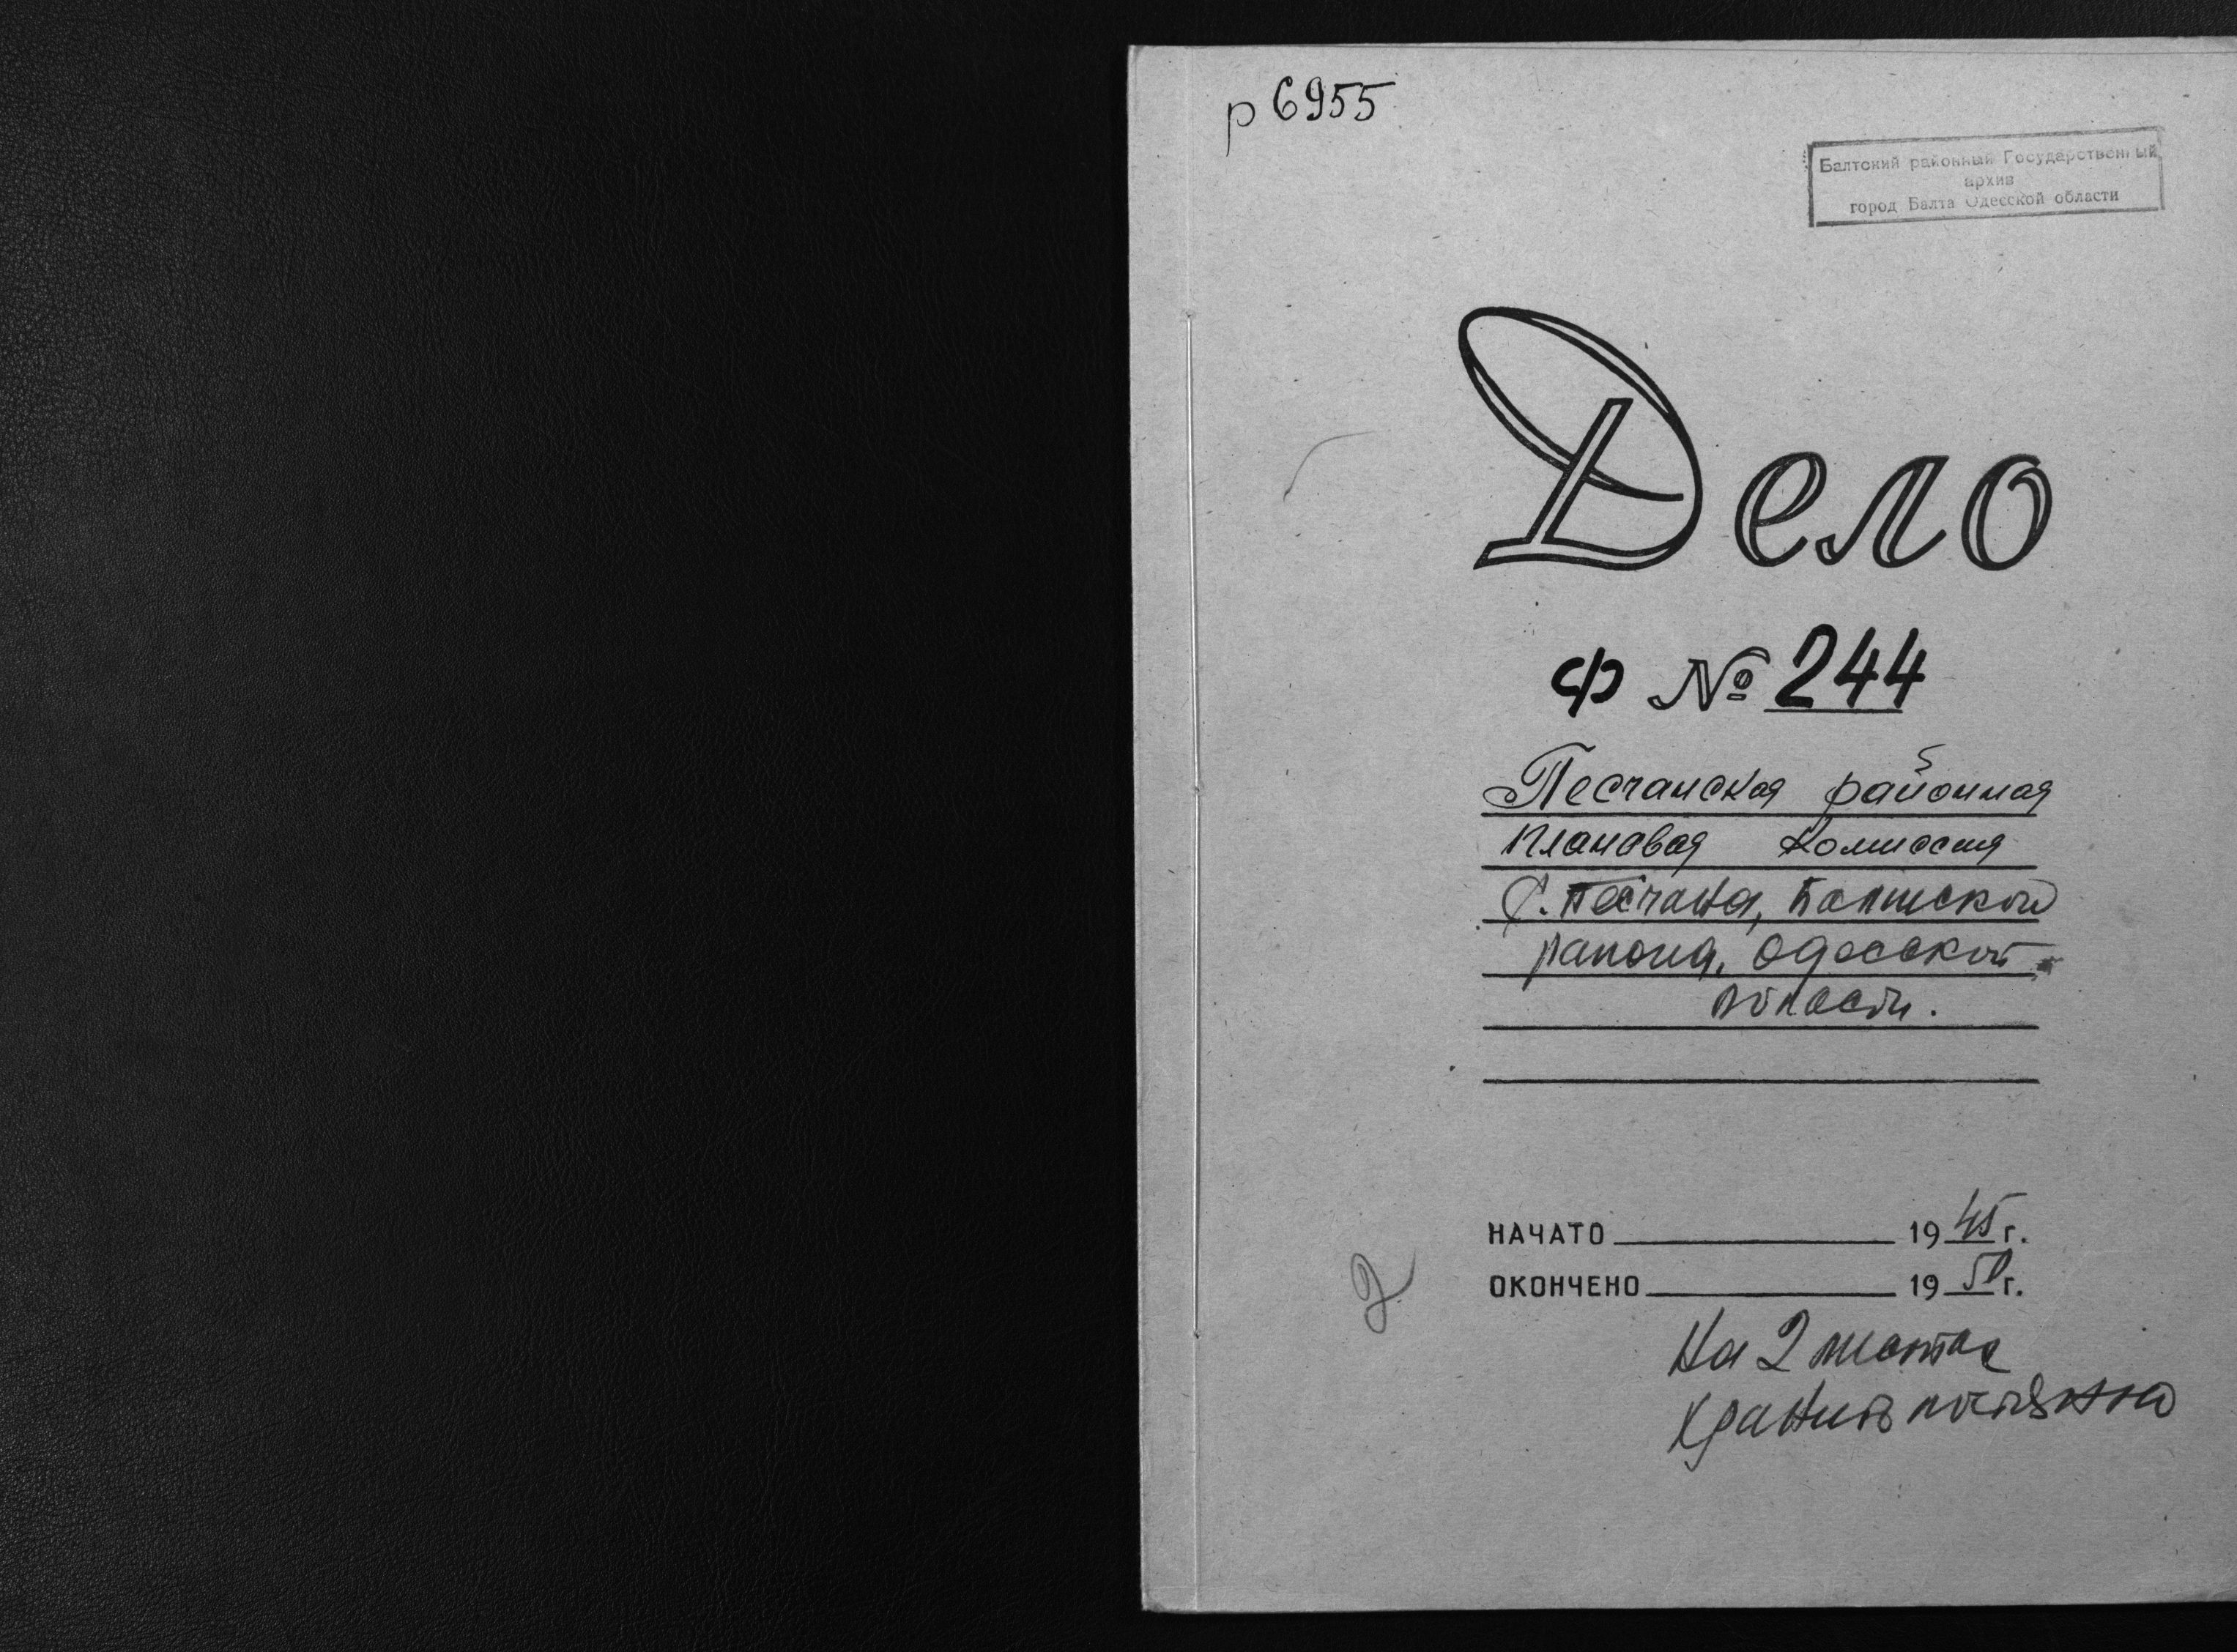 р 6955
Балтский районный Государственный
архив
город Балта Одесской области
Дело
Ф № 244
Песчанская районная
плановая комиссия
С. Песчана, Балтского
района, Одесской
области.
НАЧАТО 1945 г.
ОКОНЧЕНО 1950 г.
2
На 2 листах
Хранить постоянно